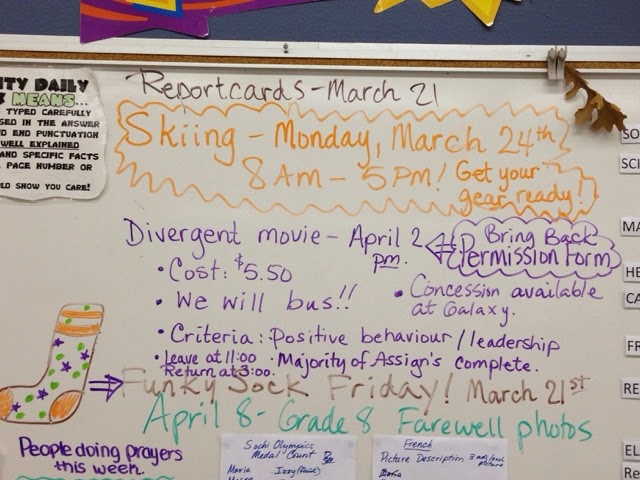 ITY DAILY
MEANS...
TYPED CAREFULLY
SED IN THE ANSWER
ND END PUNCTUATION
WELL EXPLAINED
AND SPECIFIC FACTS
PAGE NUMBER OR
LD SHOW YOU CARE!
Reportcards - March 21
Skiing - Monday, March 24th
8 AM - 5 PM! Get your
gear ready!
Divergent movie - April 2
pm.
Bring Back
Permission Form
• Cost: $5.50
• We will bus!!
• Concession available
at Galaxy.
• Criteria: Positive behaviour / leadership
• Leave at 11:00 • Majority of Assign's complete.
Return at 3:00.
Funky Sock Friday! March 21st
April 8 - Grade 8 Farewell photos
People doing prayers
this week.
Sochi Olympics
Medal Count
Maria
French
Picture Description
SO
SCI
MA
HE
CA
FR
RE
EL
Re